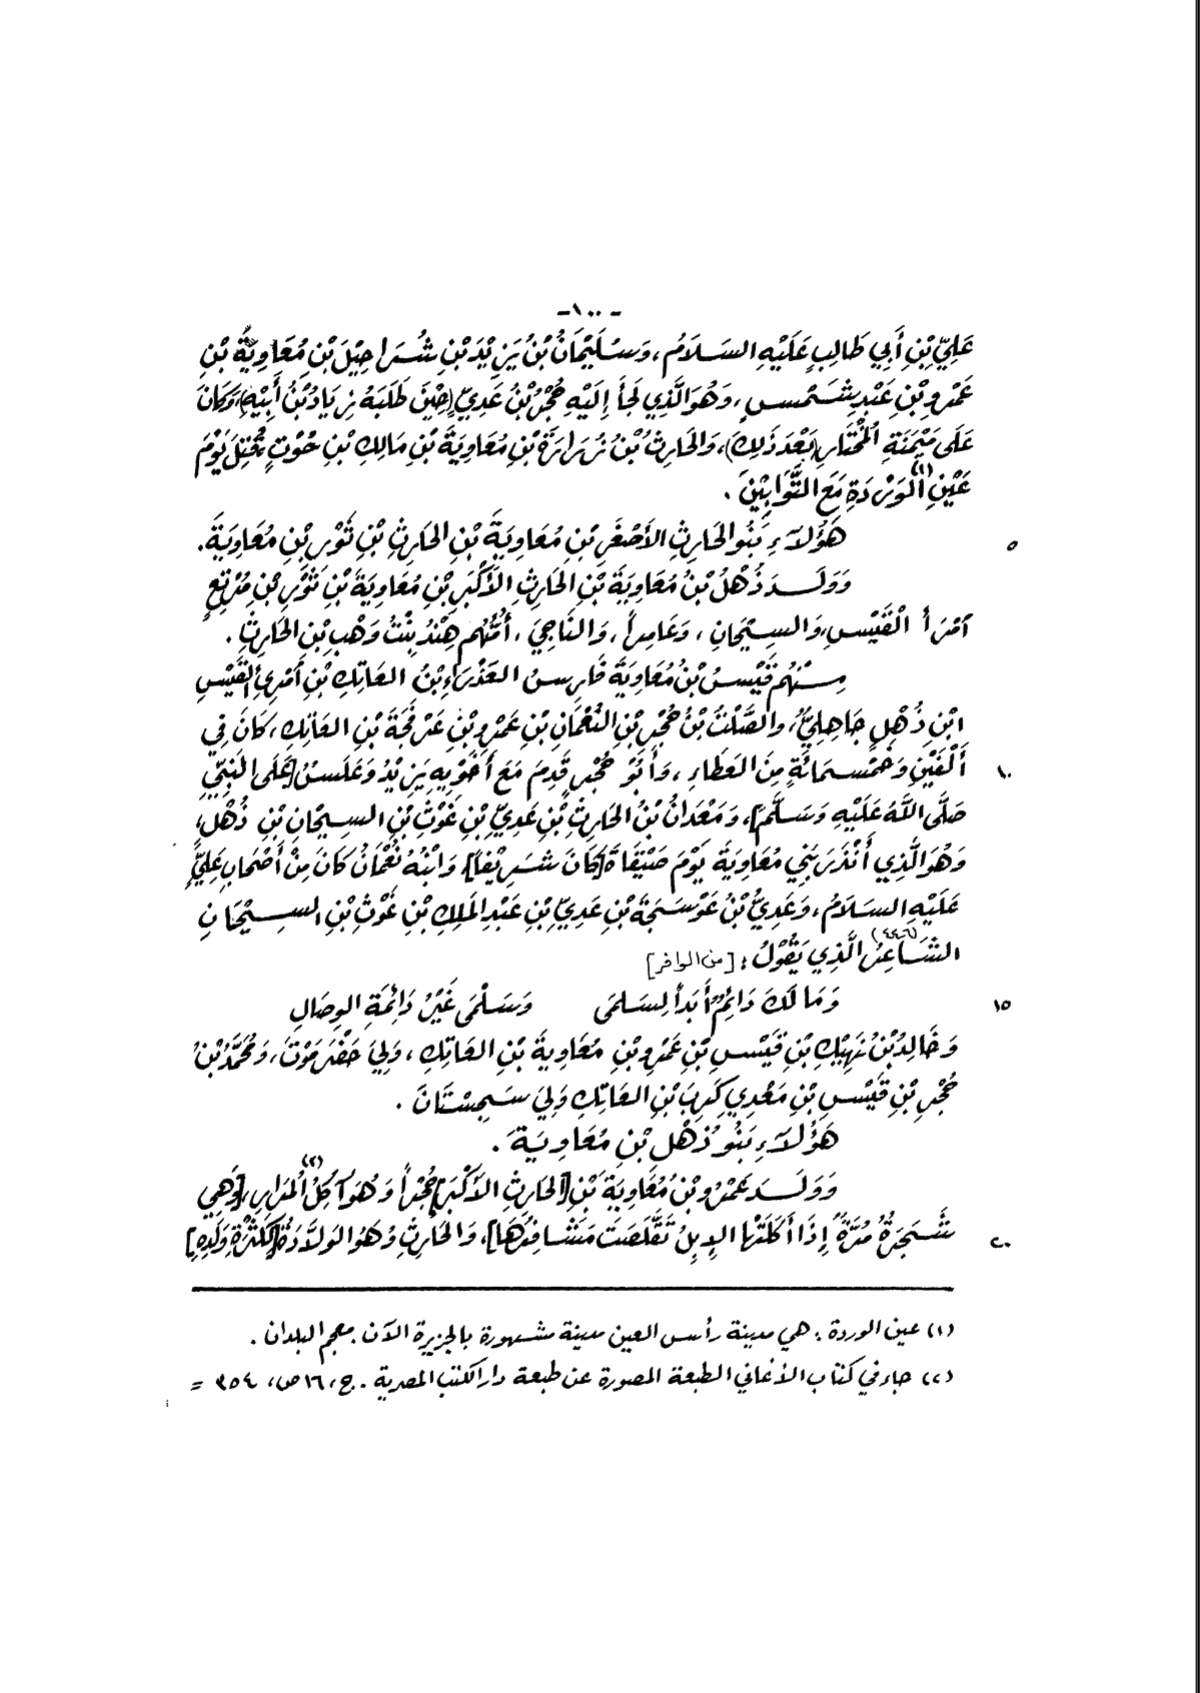 -١٠٠-
عَلِيِّ بْنِ أَبِي طَالِبٍ عَلَيْهِ السَّلَامُ، وَسُلَيْمَانُ بْنُ يَزِيْدَ بْنِ شُرَاحِيْلَ بْنِ مُعَاوِيَةَ بْنِ
عَمْرِو بْنِ عَبْدِ شَمْسٍ، وَهُوَ الَّذِي لَجَأَ إِلَيْهِ حُجْرُ بْنُ عَدِيٍّ (حِيْنَ طَلَبَهُ زِيَادُ بْنُ أَبِيْهِ)، وَكَانَ
عَلَى مَيْمَنَةِ الْمُخْتَارِ (بَعْدَ ذَلِكَ)، وَالحَارِثُ بْنُ زُرَارَةَ بْنِ مُعَاوِيَةَ بْنِ مَالِكِ بْنِ حُوْتٍ قُتِلَ يَوْمَ
عَيْنِ (١) الْوَرْدَةِ مَعَ التَّوَّابِيْنَ.
هَؤُلَاءِ بَنُو الحَارِثِ الأَصْغَرِ بْنِ مُعَاوِيَةَ بْنِ الحَارِثِ بْنِ ثَوْرِ بْنِ مُعَاوِيَةَ. ٥
وَوَلَدَ ذُهْلُ بْنُ مُعَاوِيَةَ بْنِ الحَارِثِ الأَكْبَرِ بْنِ مُعَاوِيَةَ بْنِ ثَوْرِ بْنِ مُرْتِعٍ
امْرَأَ الْقَيْسِ، وَالسِيْحَانِ، وَعَامِراً، وَالنَّاجِيَ، أُمُّهُم هِنْدُ بِنْتُ وَهْبِ بْنِ الحَارِثِ.
مِنْهُم قَيْسُ بْنُ مُعَاوِيَةَ فَارِسُ العَذْرَاءِ بْنُ العَاتِكِ بْنِ امْرِئِ القَيْسِ
ابْنِ ذُهْلٍ جَاهِلِيٌّ، وَالصَّلْتُ بْنُ حُجْرِ بْنِ النُعْمَانِ بْنِ عَمْرِو بْنِ عَرْفَجَةَ بْنِ العَاتِكِ، كَانَ فِي
أَلْفَيْنِ وَخَمْسِمَائَةٍ مِنَ العَطَاءِ، وَأَبُو حُجْرٍ قَدِمَ مَعَ أَخَوْيِهِ يَزِيْدُ وَعَلَسُ [عَلَى النَبِيِّ ١٠
صَلَّى اللهُ عَلَيْهِ وَسَلَّمَ]، وَمَعْدَانُ بْنُ الحَارِثِ بْنِ عَدِيِّ بْنِ غَوْثِ بْنِ السِيْحَانِ بْنِ ذُهْلٍ،
وَهُوَ الَّذِي أَنْذَرَ بَنِي مُعَاوِيَةَ يَوْمَ صَيْقَاةَ [كَانَ شَرِيْفاً]، وَابْنُهُ نُعْمَانُ كَانَ مِنْ أَصْحَابِ عَلِيٍّ
عَلَيْهِ السَلَامُ، وَعَدِيُّ بْنُ عَوْسَجَةَ بْنِ عَدِيِّ بْنِ عَبْدِ المَلِكِ بْنِ غَوْثِ بْنِ السِيْحَانِ
الشَاعِرُ الَّذِي يَقُوْلُ: [من الوافر]
وَمَا لَكَ دَائِمٌ أَبَداً لِسَلمَى وَسَلْمَى غَيْرُ دَائِمَةِ الوِصَالِ ١٥
وَخَالِدُ بْنُ نَهِيْكِ بْنِ قَيْسِ بْنِ عَمْرِو بْنِ مُعَاوِيَةَ بْنِ العَاتِكِ، وَلِيَ حَضْرَمَوْتَ، وَمُحَمَّدُ بْنُ
حُجْرِ بْنِ قَيْسِ بْنِ مَعْدِي كَرِبَ بْنِ العَاتِكِ وَلِيَ سَجِسْتَانَ.
هَؤُلَاءِ بَنُو ذُهْلِ بْنِ مُعَاوِيَةَ.
وَوَلَدَ عَمْرُو بْنُ مُعَاوِيَةَ بْنِ [الحَارِثِ الأَكْبَرِ] حُجْراً وَهُوَ آكِلُ (٢) الْمُرَارِ، [وَهِي
شَجَرَةٌ مُرَّةٌ إِذَا أَكَلَتْهَا الإِبِلُ تَقَلَّصَتْ مَشَافِرُهَا]، وَالحَارِثِ وَهُوَ الوَلَّادَةُ [لِكَثْرَةِ وَلَدِهِ] ٢٠
(١) عين الوردة: هي مدينة رأس العين مدينة مشهورة بالجزيرة الآن. معجم البلدان.
(٢) جاء في كتاب الأغاني الطبعة المصورة عن طبعة دار الكتب المصرية. ج، ١٦ ص، ٣٥٤ =